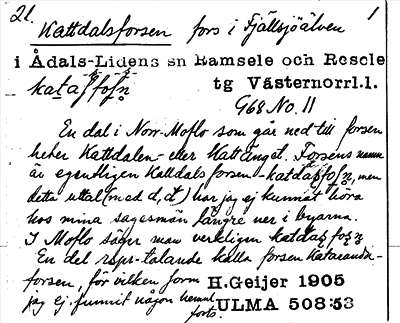 21. Kattdalsforsen fors i Fjällsjöälven 1
i Ådals-Lidens sn Ramsele och Resele
tg Västernorrl.l.
G68 No. 11
En dal i Norr-Moflo som går ned till forsen
heter Kattdalen eller Kattänget. Forsens namn
är egentligen Kattdalsforsen - men
detta uttal (med d, ) har jag ej kunnat höra
hos mina sagesmän längre ner i byarna.
I Moflo säger man verkligen
En del -talande kalla forsen Kataranda-
forsen, för vilken form H. Geijer 1905
jag ej funnit någon hemul ULMA 508:53
forts.